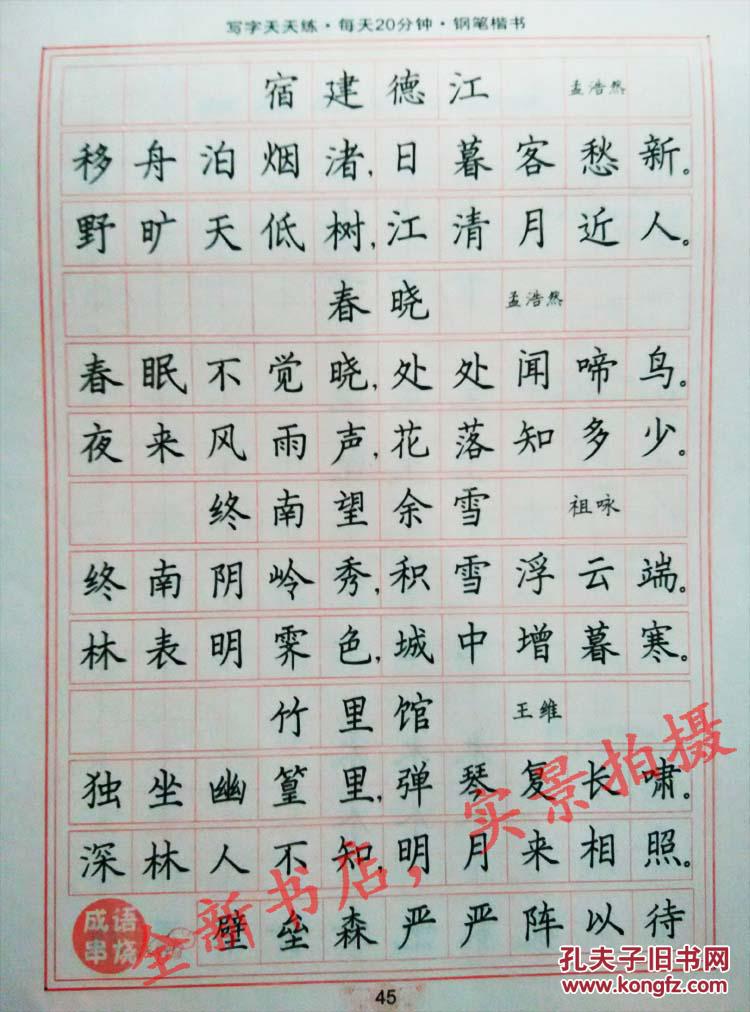 写字天天练·每天20分钟·钢笔楷书
宿建德江 孟浩然
移舟泊烟渚,日暮客愁新。
野旷天低树,江清月近人。
春晓 孟浩然
春眠不觉晓,处处闻啼鸟。
夜来风雨声,花落知多少。
终南望余雪 祖咏
终南阴岭秀,积雪浮云端。
林表明霁色,城中增暮寒。
竹里馆 王维
独坐幽篁里,弹琴复长啸。
深林人不知,明月来相照。
成语串烧
壁垒森严 严阵以待
全新书店,实景拍摄
45
孔夫子旧书网
www.kongfz.com